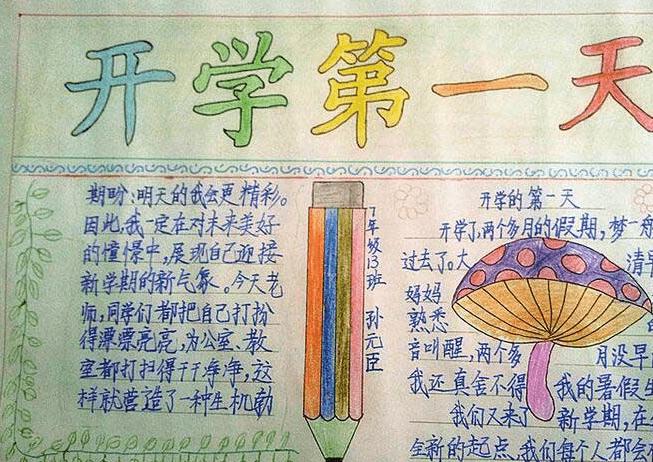 开学第一天
期盼:明天的我会更精彩。
因此,我一定在对未来美好
的憧憬中,展现自己迎接
新学期的新气象。今天老
师,同学们都把自己打扮
得漂漂亮亮,为公室、教
室都打扫得干干净净,这
样就营造了一种生机勃
7年级13班 孙元臣
开学的第一天
开学了,两个多月的假期,梦一般
过去了。大 清早
妈妈
熟悉 的
音叫醒,两个多 月没早
我还真舍不得 我的暑假生
我们又来了 新学期,在
全新的起点,我们每个人都会